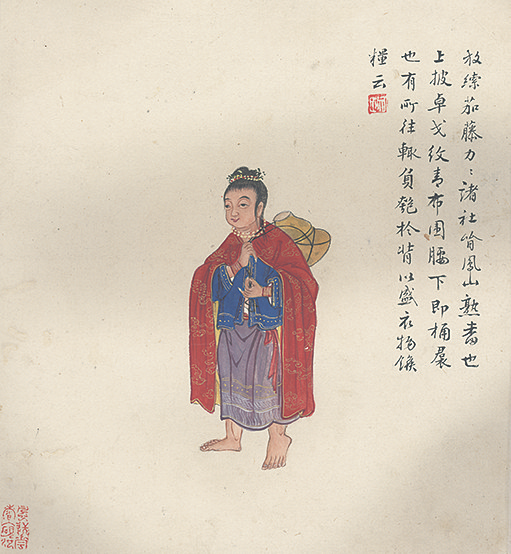 放縤茄藤力〻諸社皆鳳山熟番也
上披卓戈紋青布圍腰下即桶裠
也有所往輒負匏於背以盛衣物餱
糧云